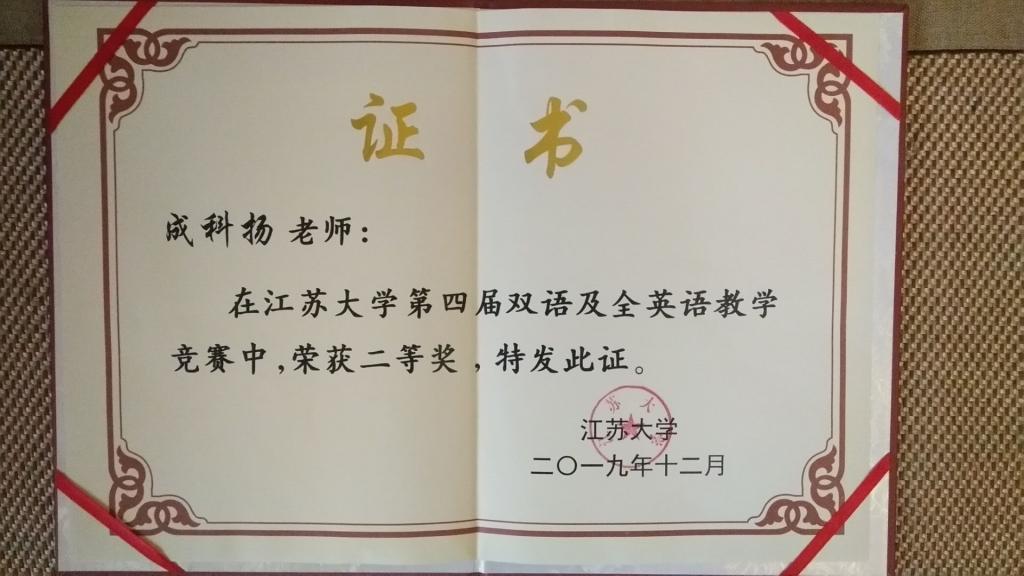 证 书
成科扬 老师：
在江苏大学第四届双语及全英语教学
竞赛中,荣获二等奖，特发此证。
江苏大学
二〇一九年十二月